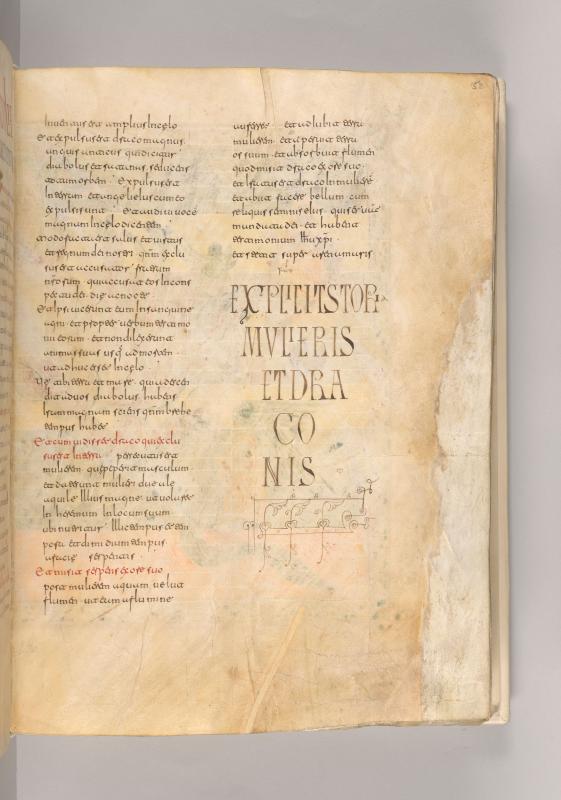 inuentus est amplius in celo
Et expulsus est draco magnus
anguis anticus qui dicitur
diabolus et satanas. seducens
totum orbem. Expulsus est
in terram et angeli eius cum eo
expulsi sunt. Et audiui uocem
magnam in celo dicentem
modo facta est salus et uirtus
et regnum dei nostri. qnm exclu
sus est accusator fratrum
nrorum. qui accusat eos in cons
pectu dei. die ac nocte.
Et ipsi uicerunt eum in sanguine
agni. et propter uerbum testimo
nii eorum. et non dilexerunt
animas suas usq. ad mortem
esse in celo
Ve tibi terra et mare. quia descen
dit ad uos diabolus. habens
iram magnam sciens qnm brebe
tempus habet
Et cum uidisset draco quia exclu
sus est in terra persecutus est
mulierem. que peperit masculum
et date sunt mulieri due ale
aquile illius magne ut uolaret
in heremum in locum suum
ubi nutritur. illic tempus et tem
pora et dimidium tempus
a facie serpentis.
Et misit serpens ex ore suo
post mulierem aquam uelut
flumen. ut eam a flumine
auferret et adiubit terra
mulierem. et aperuit terra
os suum. et absorbuit flumen
quod misit draco ex ore suo
et iratus est draco in mulierem
et abiit facere bellum cum
reliquis seminis eius. qui
mandata dei. et habent
testimonium ihu xpi.
et stetit super arenam maris
EXPLICIT STORIA
MULIERIS
ET DRA
CO
NIS